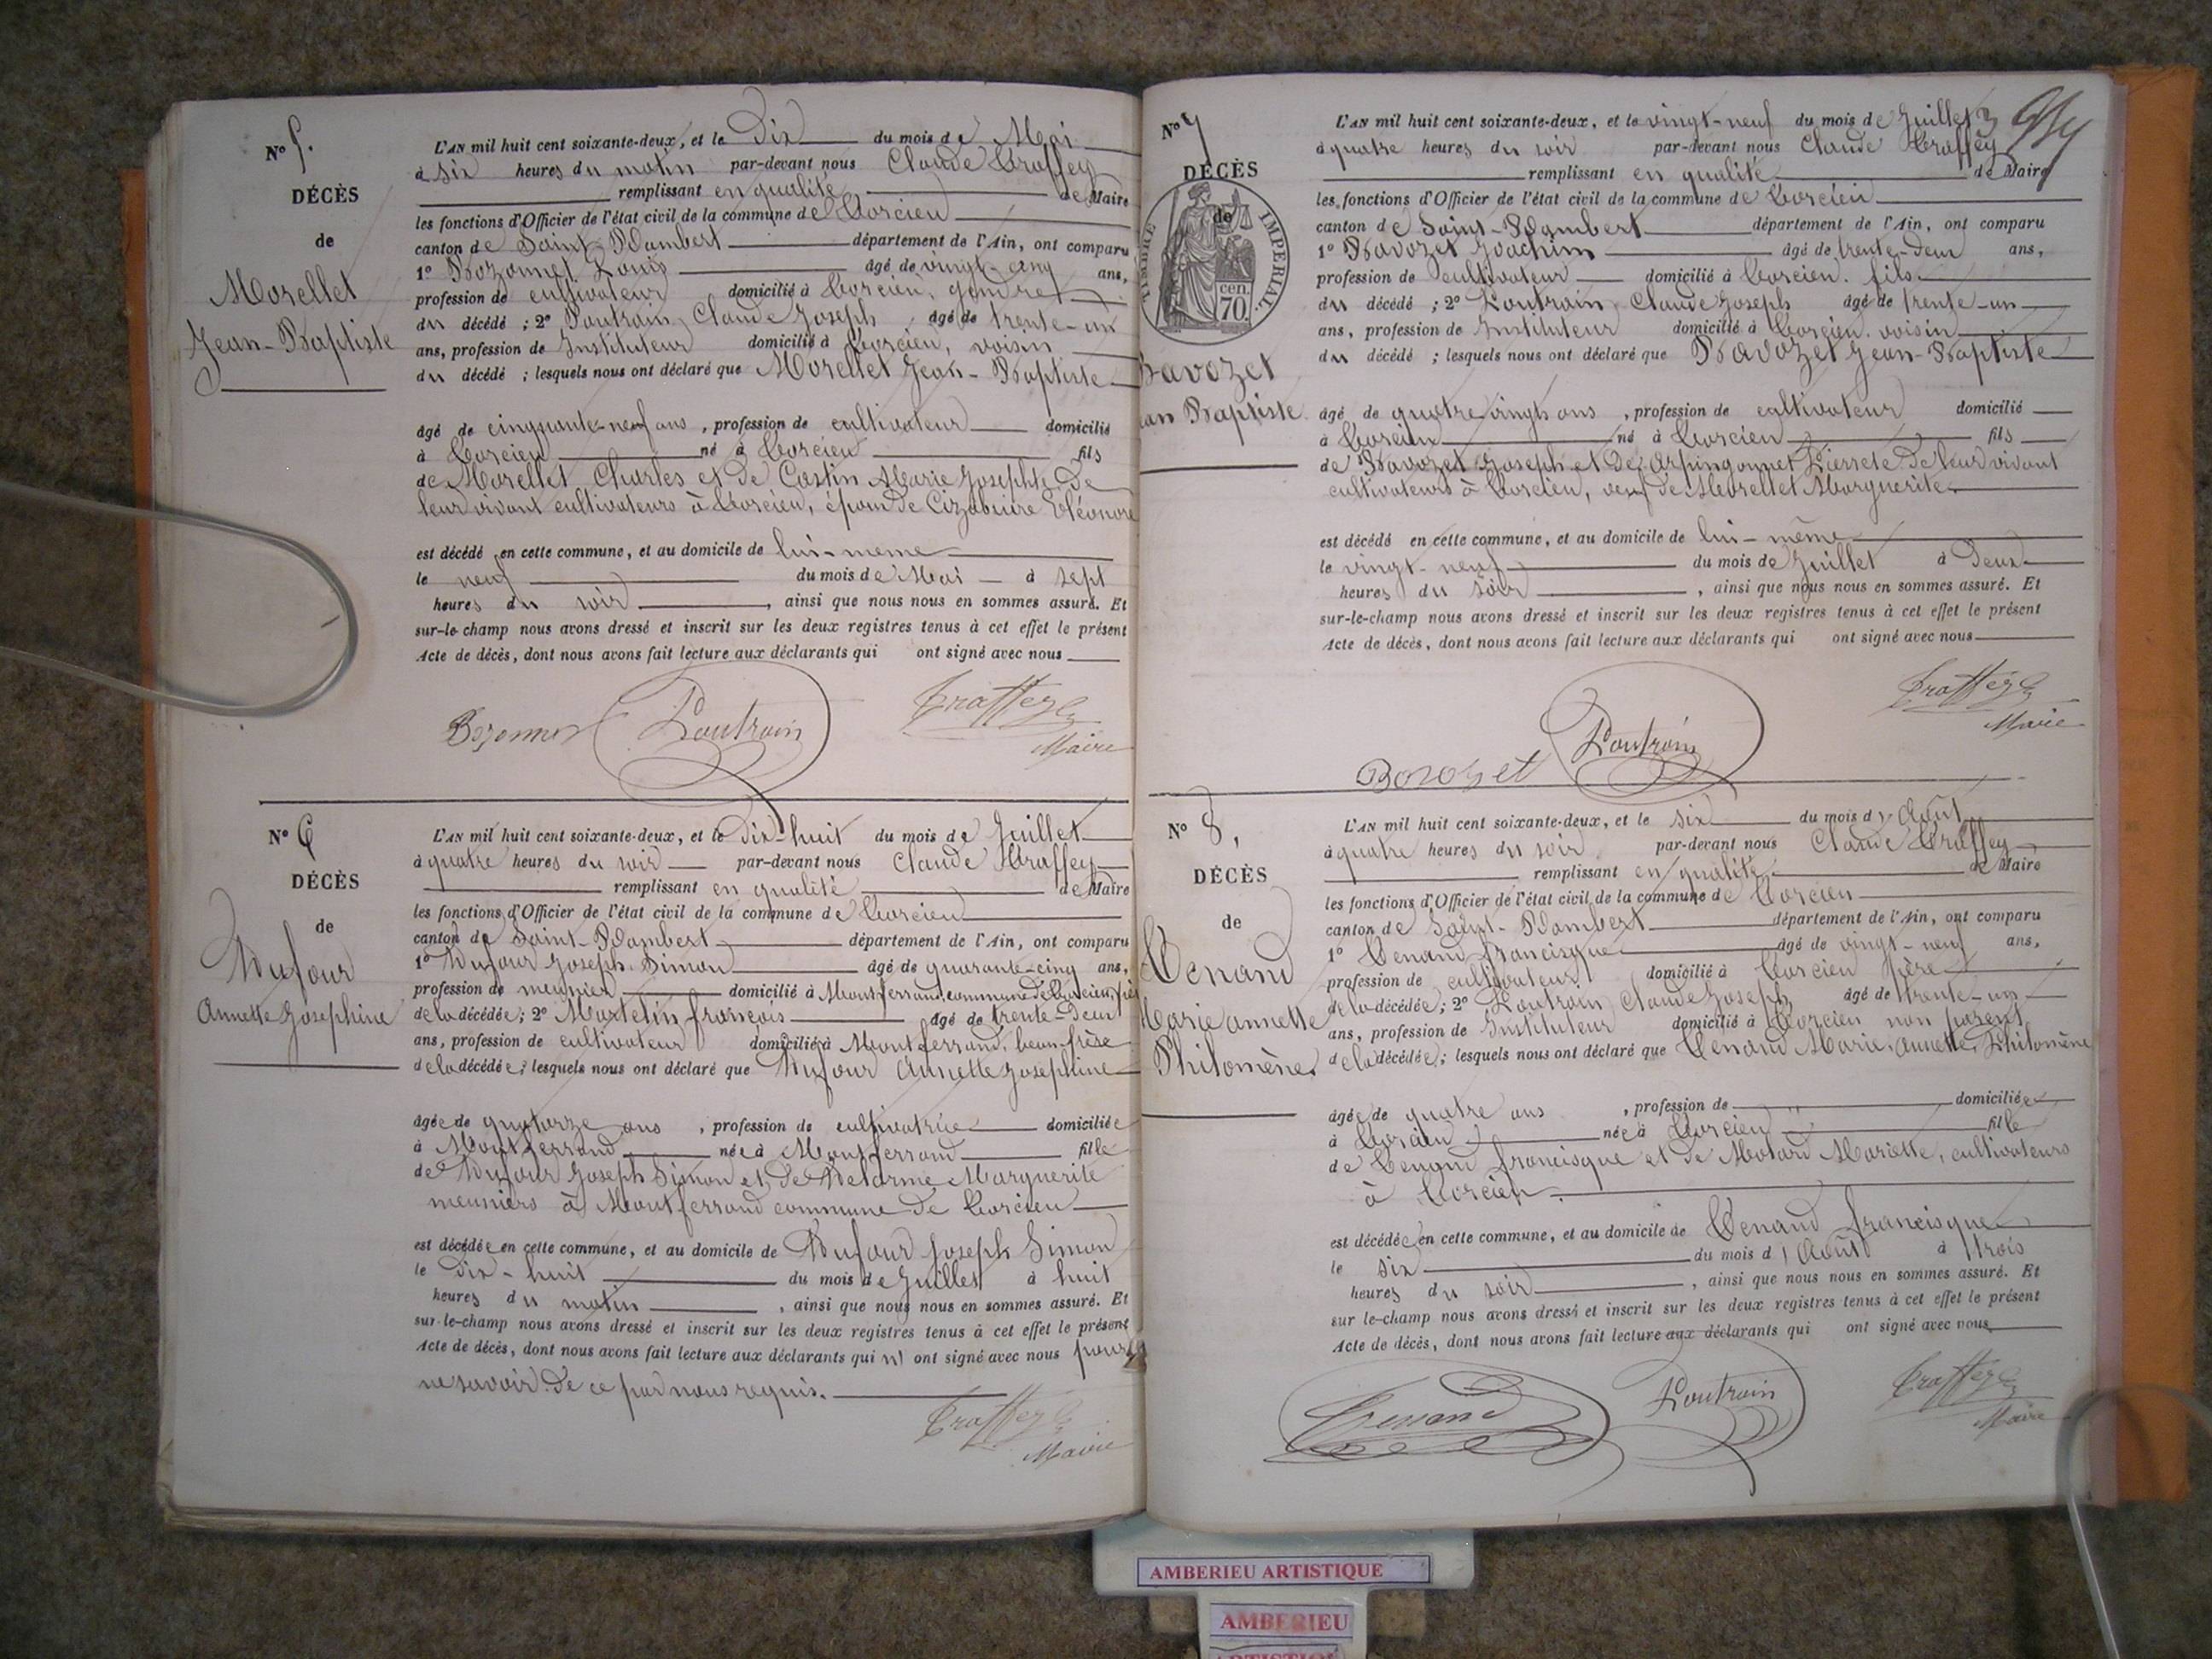 N° 5.
DÉCÈS
de
Morellet
Jean-Baptiste
L'AN mil huit cent soixante-deux, et le dix du mois de Mai
à six heures du matin par-devant nous Claude Traffey
remplissant en qualité de Maire
les fonctions d'Officier de l'état civil de la commune de Torcieu
canton de Saint-Rambert département de l'Ain, ont comparu
1° Bozonnet Louis âgé de vingt-cinq ans,
profession de cultivateur domicilié à Torcieu, gendre
du décédé ; 2° Poutrain Claude Joseph âgé de trente-un
ans, profession de Instituteur domicilié à Torcieu, voisin
du décédé ; lesquels nous ont déclaré que Morellet Jean-Baptiste
âgé de cinquante-neuf ans, profession de cultivateur domicilié
à Torcieu né à Torcieu fils
de Morellet Charles et de Costin Marie Josephte de
leur vivant cultivateurs à Torcieu, époux de Eléonore
est décédé en cette commune, et au domicile de lui-même
le neuf du mois de Mai à sept
heures du soir, ainsi que nous nous en sommes assuré. Et
sur-le-champ nous avons dressé et inscrit sur les deux registres tenus à cet effet le présent
Acte de décès, dont nous avons fait lecture aux déclarants qui ont signé avec nous
Bozonnet Poutrain Traffey
Maire
N° 6
DÉCÈS
de
Dufour
Annette Josephine
L'AN mil huit cent soixante-deux, et le dix-huit du mois de Juillet
à quatre heures du soir par-devant nous Claude Traffey
remplissant en qualité de Maire
les fonctions d'Officier de l'état civil de la commune de Torcieu
canton de Saint-Rambert département de l'Ain, ont comparu
1° Dufour Joseph Simon âgé de quarante-cinq ans,
profession de meunier domicilié à Montferrand, commune de Torcieu, père
de la décédée; 2° Martelin françois âgé de trente-deux
ans, profession de cultivateur domicilié à Montferrand, beau-frère
de la décédée; lesquels nous ont déclaré que Dufour Annette Josephine
âgée de quatorze ans, profession de cultivatrice domiciliée
à Montferrand née à Montferrand fille
de Dufour Joseph Simon et de Delorme Marguerite
meuniers à Montferrand commune de Torcieu
est décédée en cette commune, et au domicile de Dufour Joseph Simon
le dix-huit du mois de Juillet à huit
heures du matin, ainsi que nous nous en sommes assuré. Et
sur-le-champ nous avons dressé et inscrit sur les deux registres tenus à cet effet le présent
Acte de décès, dont nous avons fait lecture aux déclarants qui n' ont signé avec nous pour
ne savoir de ce par nous requis.
Traffey
Maire
N° 7
DÉCÈS
de
TIMBRE IMPERIAL
70 cen.
Bavozet
Jean Baptiste
L'AN mil huit cent soixante-deux, et le vingt-neuf du mois de Juillet
à quatre heures du soir par-devant nous Claude Traffey
remplissant en qualité de Maire
les fonctions d'Officier de l'état civil de la commune de Torcieu
canton de Saint-Rambert département de l'Ain, ont comparu
1° Bavozet Joachim âgé de trente-deux ans,
profession de cultivateur domicilié à Torcieu. fils
du décédé ; 2° Poutrain Claude Joseph âgé de trente-un
ans, profession de Instituteur domicilié à Torcieu. voisin
du décédé ; lesquels nous ont déclaré que Bavozet Jean-Baptiste
âgé de quatre vingts ans, profession de cultivateur domicilié
à Torcieu né à Torcieu fils
de Bavozet Joseph et de Pierrete de leur vivant
cultivateurs à Torcieu, veuf de Morellet Marguerite
est décédé en cette commune, et au domicile de lui-même
le vingt-neuf du mois de Juillet à deux
heures du soir, ainsi que nous nous en sommes assuré. Et
sur-le-champ nous avons dressé et inscrit sur les deux registres tenus à cet effet le présent
Acte de décès, dont nous avons fait lecture aux déclarants qui ont signé avec nous
Bovozet Poutrain Traffey
Maire
N° 8,
DÉCÈS
de
Tenand
Marie annette
Philomène.
L'AN mil huit cent soixante-deux, et le six du mois d'Août
à quatre heures du soir par-devant nous Claude Traffey
remplissant en qualité de Maire
les fonctions d'Officier de l'état civil de la commune de Torcieu
canton de Saint-Rambert département de l'Ain, ont comparu
1° Tenand francisque âgé de vingt-neuf ans,
profession de cultivateur domicilié à Torcieu père
de la décédée; 2° Poutrain Claude Joseph âgé de trente-un
ans, profession de Instituteur domicilié à Torcieu non parent
de la décédée; lesquels nous ont déclaré que Tenand Marie, annette, Philomène
âgée de quatre ans, profession de domiciliée
à Torcieu née à Torcieu fille
de Tenand francisque et de Motard Mariette, cultivateurs
à Torcieu.
est décédée en cette commune, et au domicile de Tenand francisque
le six du mois d'Août à trois
heures du soir, ainsi que nous nous en sommes assuré. Et
sur le-champ nous avons dressé et inscrit sur les deux registres tenus à cet effet le présent
Acte de décès, dont nous avons fait lecture aux déclarants qui ont signé avec nous
Tenand Poutrain Traffey
Maire
AMBERIEU ARTISTIQUE
AMBERIEU
ARTISTIQUE